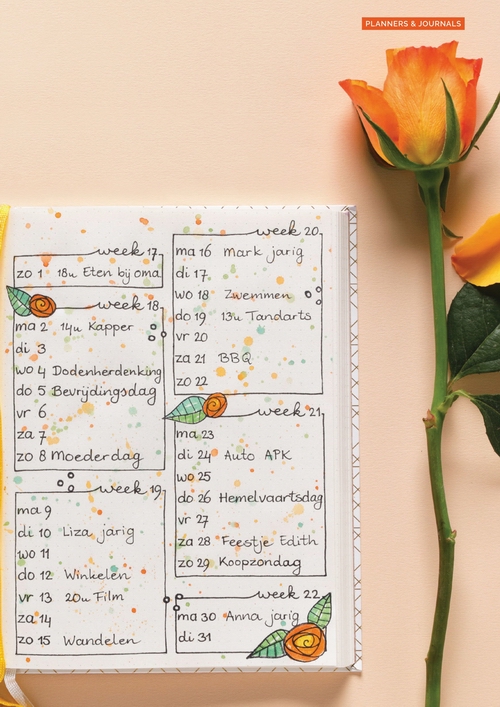 PLANNERS & JOURNALS
week 17
zo 1 18u Eten bij oma
week 18
ma 2 14u Kapper
di 3
wo 4 Dodenherdenking
do 5 Bevrijdingsdag
vr 6
za 7
zo 8 Moederdag
week 19
ma 9
di 10 Liza jarig
wo 11
do 12 Winkelen
vr 13 20u Film
za 14
zo 15 Wandelen
week 20
ma 16 mark jarig
di 17
wo 18 Zwemmen
do 19 13u Tandarts
vr 20
za 21 BBQ
zo 22
week 21
ma 23
di 24 Auto APK
wo 25
do 26 Hemelvaartsdag
vr 27
za 28 Feestje Edith
zo 29 Koopzondag
week 22
ma 30 Anna jarig
di 31